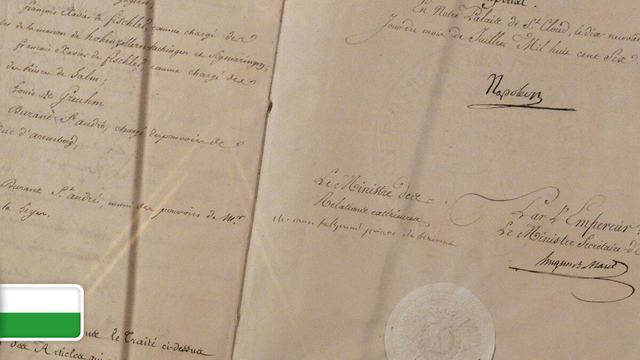 François Xavier de fischler, comme chargé de
de la maison de hohenzollern hechingen et Sigmaringen;
françois Xavier de fischler comme chargé de
du Prince de Salm;
Louis de Greuhm
Durant St. andré, chargé du pouvoir de
duc d'aremberg;
Durant St. andré, muni des pouvoirs de Mr.
la leyen.
le Traité ci-dessus
des Articles qui
En Notre Palais de St. Cloud, le dix neuvième
Jour du mois de Juillet Mil huit cent Six
Napoleon
Le Ministre des
Relations extérieures,
ch. mau. talleyrand prince de bénévent
Par l'Empereur
Le Ministre Secrétaire d'E
hugues B. Maret